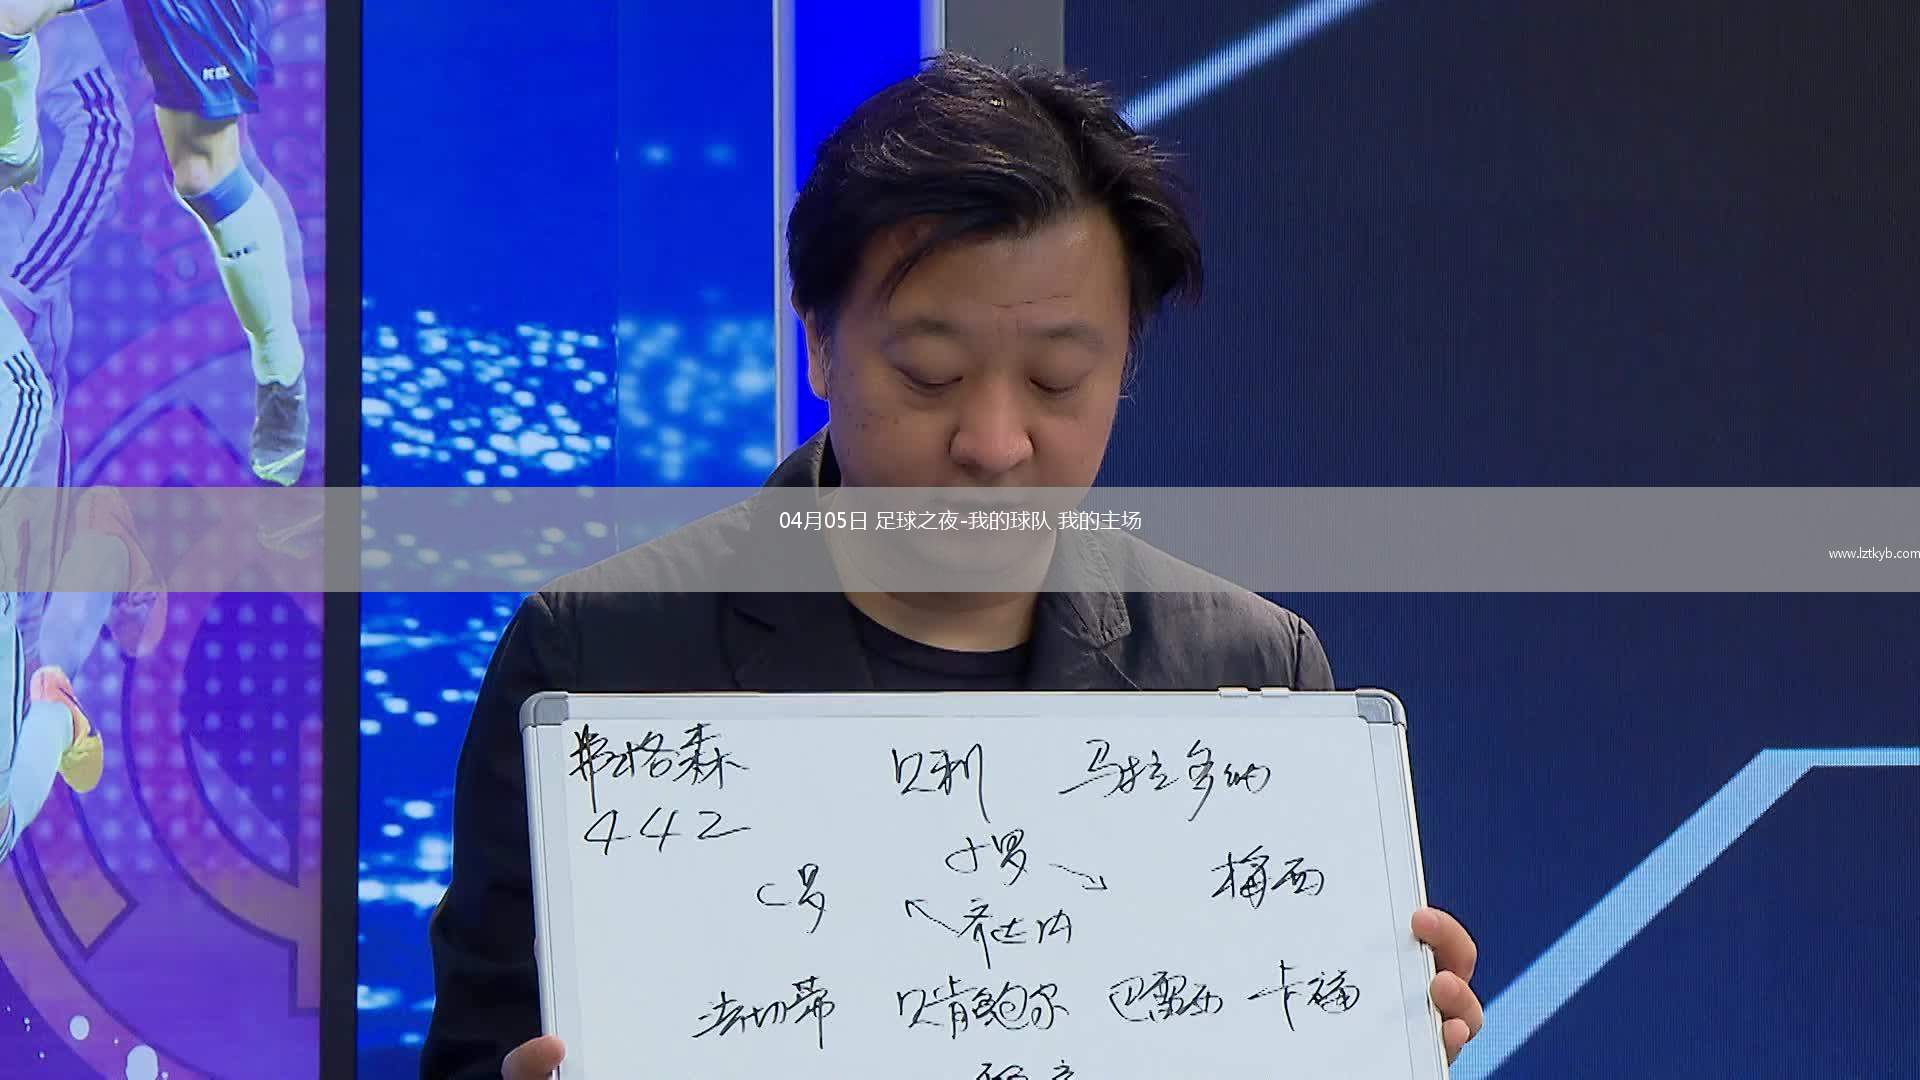 04月05日 足球之夜-我的球队 我的主场
www.lztkyb.com
弗格森 贝利 马拉多纳
442
小罗
C罗 梅西
齐达内
法切蒂 贝肯鲍尔 巴雷西 卡福